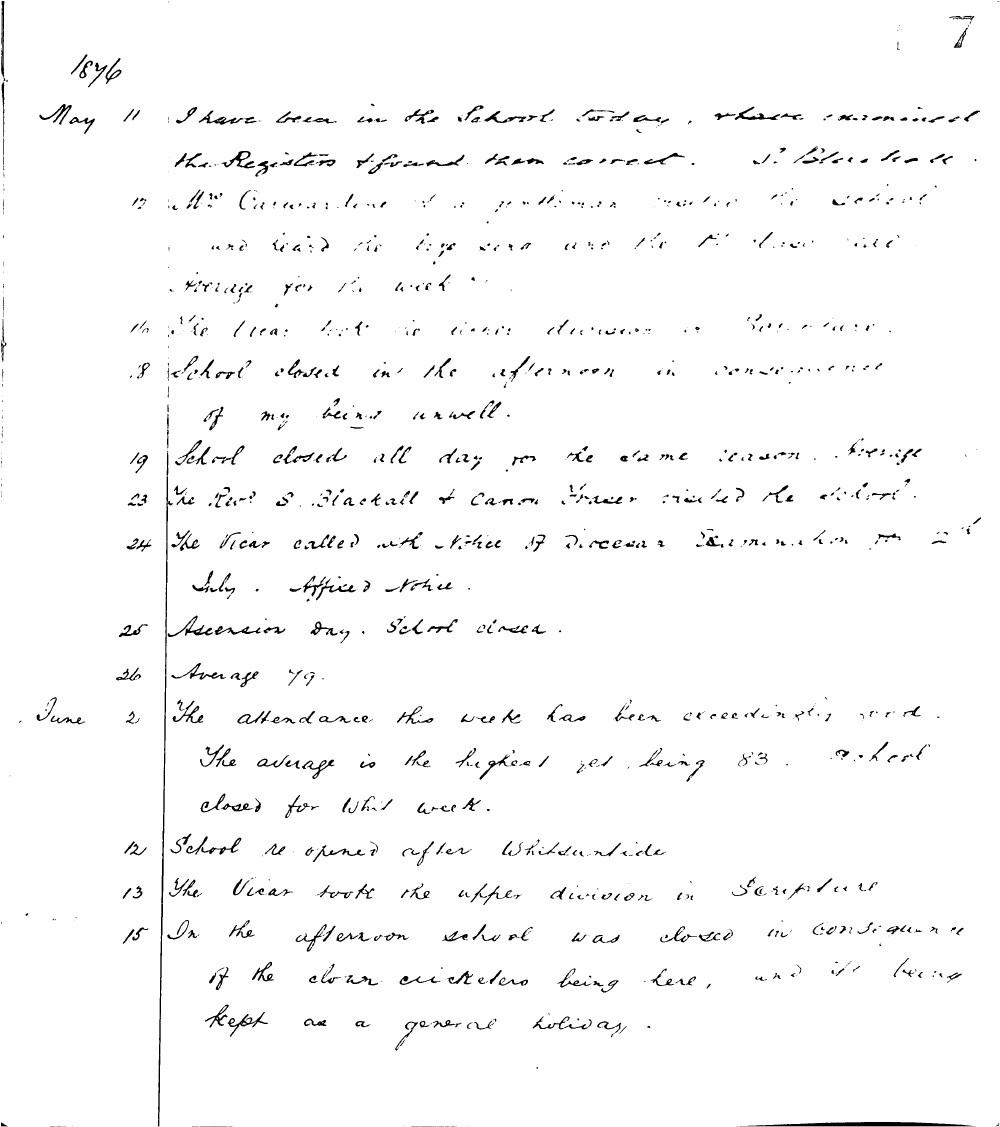 7
1876
May 11 I have been in the School today, & have examined
the Registers & found them correct. S. Blackall.
12 Mrs Carwardine & a gentleman visited the School
and heard the boys sing and the 1st class read
Average for the week
16 The Vicar took the upper division in Scripture.
18 School closed in the afternoon in consequence
of my being unwell.
19 School closed all day for the same reason. Average
23 The Revd S. Blackall & Canon Fraser visited the School.
24 The Vicar called with Notice of Diocesan Examination for
July. Affixed Notice.
25 Ascension Day. School closed.
26 Average 79.
June 2 The attendance this week has been exceedingly good.
The average is the highest yet, being 83. School
closed for Whit week.
12 School re opened after Whitsuntide
13 The Vicar took the upper division in Scripture
15 In the afternoon school was closed in consequence
of the clown cricketers being here, and its being
kept as a general holiday.